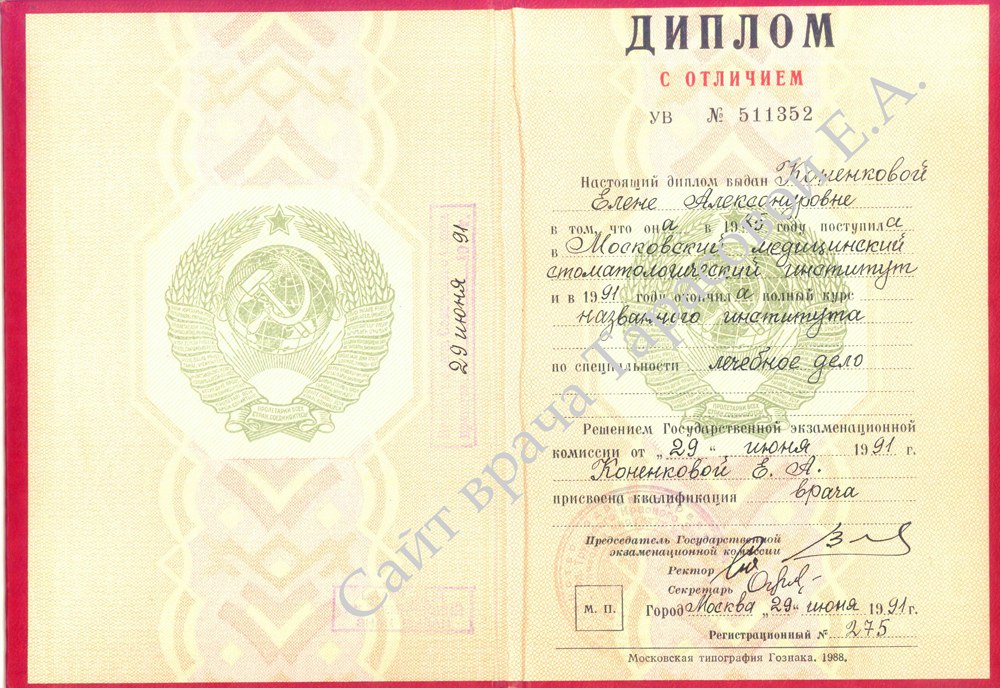 29 июня 91
ДИПЛОМ
С ОТЛИЧИЕМ
УВ № 511352
Настоящий диплом выдан Коненковой
Елене Александровне
в том, что она в 1985 году поступила
в Московский медицинский
стоматологический институт
и в 1991 году окончила полный курс
названного института
по специальности лечебное дело
Решением Государственной экзаменационной
комиссии от „29“ июня 1991 г.
Коненковой Е. А.
присвоена квалификация врача
Председатель Государственной
экзаменационной комиссии
Ректор
Секретарь
М. П.
Город Москва „29“ июня 1991 г.
Регистрационный № 275
Московская типография Гознака. 1988.
Сайт врача Тарасовой Е.А.